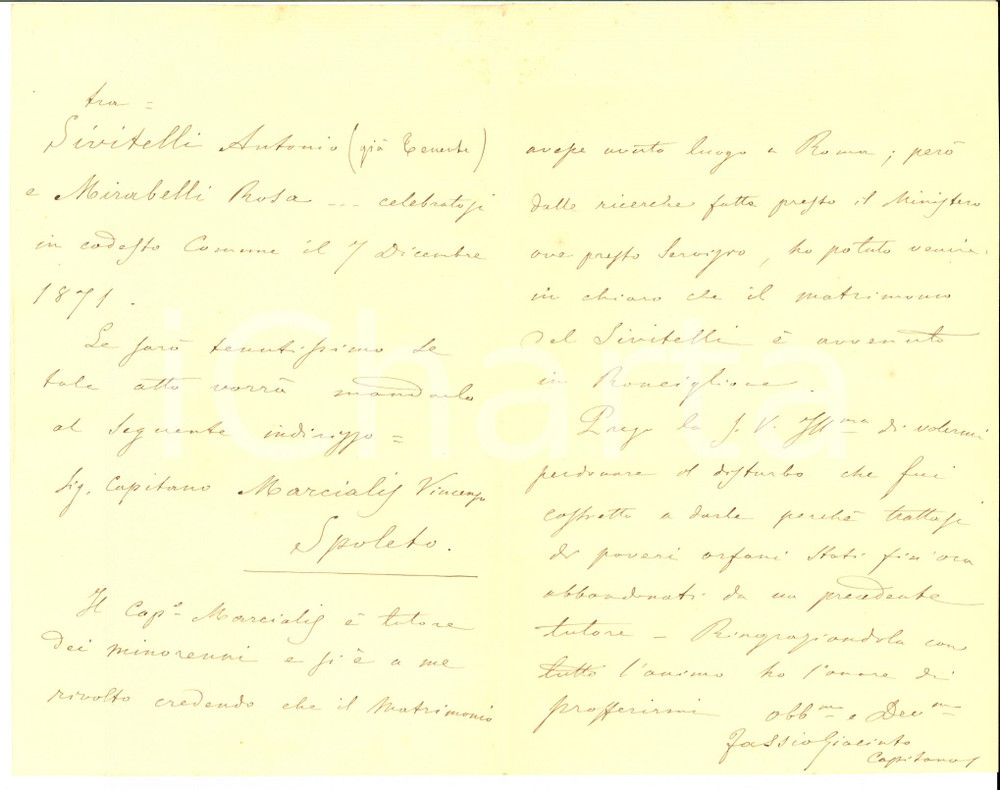 tra =
Sivitelli Antonio (già Tenente)
e Mirabelli Rosa ... celebratosi
in codesto Comune il 7 Dicembre
1871.
Le sarò tenutissimo se
tale atto vorrà mandarlo
al seguente indirizzo =
Sig. Capitano Marcialis Vincenzo
Spoleto.
Il Cap.o Marcialis è tutore
dei minorenni e si è a me
rivolto credendo che il Matrimonio
avesse avuto luogo a Roma; però
dalle ricerche fatte presso il Ministero
ove presto Servizio, ho potuto venire
in chiaro che il matrimonio
del Sivitelli è avvenuto
in Ronciglione.
Prego la S. V. Ill.ma di volermi
perdonare il disturbo che fui
costretto a darle perchè trattasi
di poveri orfani stati fin'ora
abbandonati da un precedente
tutore - Ringraziandola con
tutto l'animo ho l'onore di
profferirmi obb.mo e Dev.mo
Fassio Giacinto
Capitano
iCharta